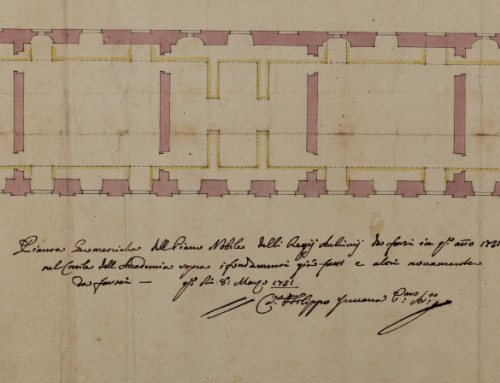 Pianta Geometrica dell Piano Nobile delli Regij Archivij da farsi in q.to anno 1731
nel Cortile dell Academia sopra i fondamenti già fatti e altri novamente
da farsi — li 8: Marzo 1731
Cav. Filippo Juvarra P.mo Ar.to